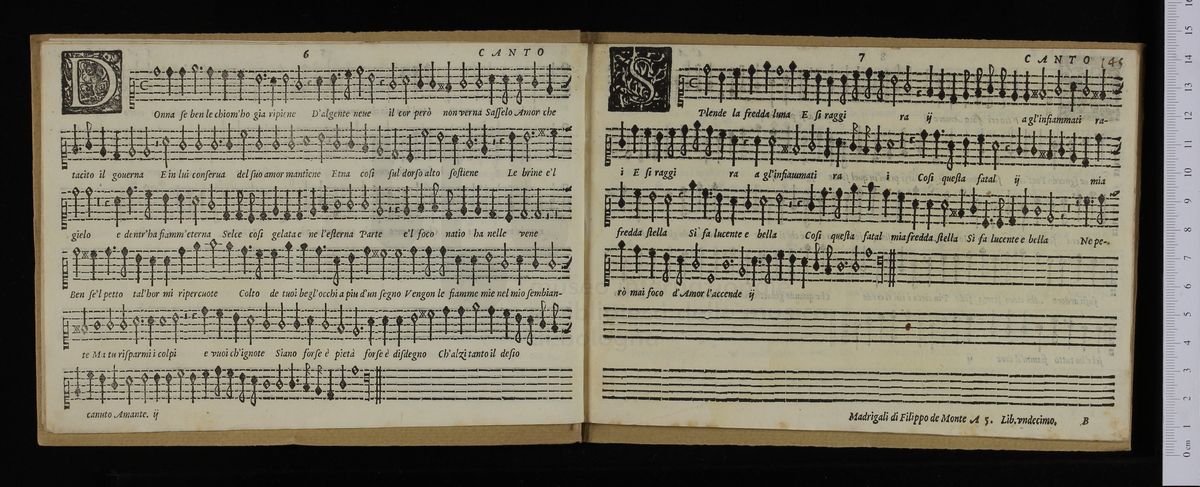 6 CANTO
DOnna se ben le chiom'ho gia ripiene D'algente neue il cor però non verna Sasselo Amor che
tacito il gouerna E in lui conserua del suo amor mantiene Etna così sul dorso alto sostiene Le brine e'l
gielo e dentr'ha fiamm'eterna Selce così gelata e ne l'esterna Parte e'l foco natio ha nelle vene
Ben se'l petto tal'hor mi ripercuote Colto de tuoi begl'occhi a piu d'un segno Vengon le fiamme mie nel mio sembian-
te Ma tu risparmi i colpi e vuoi ch'ignote Siano forse è pietà forse è disdegno Ch'alzi tanto il desio
canuto Amante. ij
7 CANTO 145
SPlende la fredda luna E si raggi ra ij a gl'infiammati ra-
i E si raggi ra a gl'infiaumati ra i Così questa fatal ij mia
fredda stella Si fa lucente e bella Così questa fatal mia fredda stella Si fa lucente e bella Ne pe-
rò mai foco d'Amor l'accende ij
Madrigali di Filippo de Monte A 5. Lib. vndecimo. B